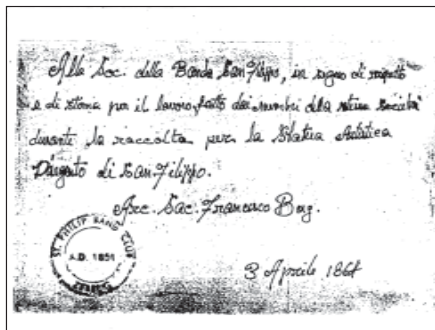 Alla Soc. della Banda San Filippo, in segno di rispetto
e di stima per il lavoro fatto dai membri della stessa Società
durante la raccolta per la Statua Artistica
D'argento di San Filippo.
Arc. Sac. Francesco Borg.
ST. PHILIP BAND CLUB
A.D. 1851
ZEBBUG
3 Aprile 186